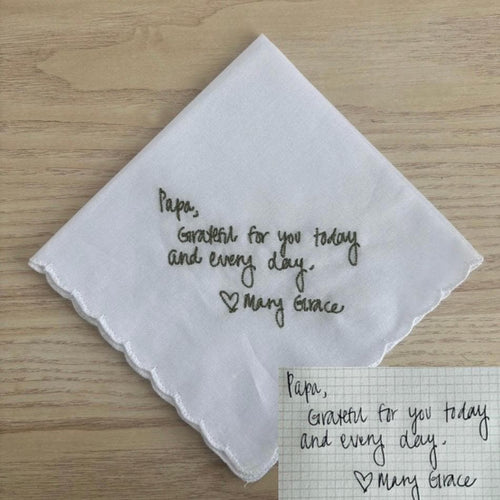 Papa,
Grateful for you today
and every day.
♡ Mary Grace
Papa,
Grateful for you today
and every day.
♡ Mary Grace